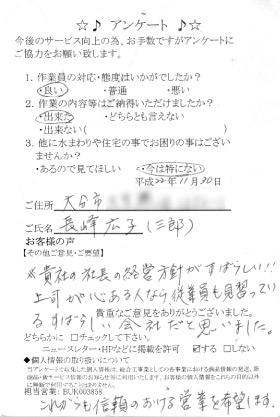 ☆♪ アンケート ♪☆
今後のサービス向上の為、お手数ですがアンケートに
ご協力をお願い致します。
1. 作業員の対応・態度はいかがでしたか?
・良い ・普通 ・悪い
2. 作業の内容等はご納得いただけましたか?
・出来た ・どちらとも言えない
・出来ない( )
3. 他に水まわりや住宅の事でお困りの事はござい
ませんか?
・あるので見てほしい ・今は特にない
平成22年11月20日
ご住所 大分市
ご氏名 長峰広子(三郎)
お客様の声
【その他ご意見・ご要望】
※貴社の社長の経営方針がすばらしい!!
上司が心ある人なら従業員も見習っている
すばらしい会社だと思いました。
貴重なご意見をありがとうございました。
どちらかに □チェックして下さい。
ニュースレター・HPなどに掲載を許可 する □しない
◆個人情報の取り扱いについて
担当営業: BUK003858
これからも信頼のおける営業を希望します。